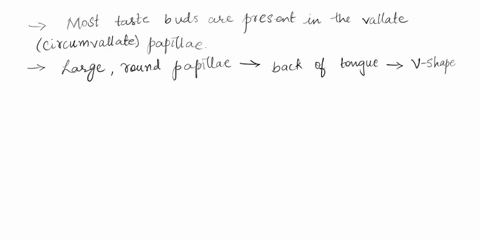 → Most taste buds are present in the vallate
(circumvallate) papillae.
→ Large, round papillae → back of tongue → V-shape